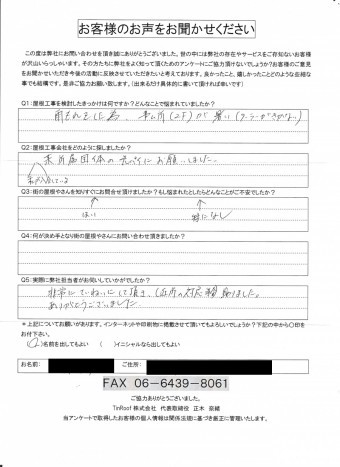 お客様のお声をお聞かせください
この度は弊社にお問い合わせを頂き誠にありがとうございました。世の中には弊社の存在やサービスをご存知ないお客様
が沢山いらっしゃいます。その方たちに弊社をよく知って頂くためのアンケートにご協力頂けないでしょうか?お客様のご意見
をお聞かせいただき今後の活動に反映させていきたいと考えております。良かったこと、嬉しかったことどのような些細な
事でも結構です。是非ご協力お願い致します。(出来るだけ具体的に書いて頂ければ幸いです)
Q1:屋根工事を検討したきっかけは何ですか?どんなことで悩まれていましたか?
雨もれをした為、事ム所(2F)が暑い(クーラーがきかない)
Q2:屋根工事会社をどのように探しましたか?
所属団体の
お願いしました。
Q3:街の屋根やさんを知りすぐにお問合せ頂けましたか?もし悩まれたとしたらどんなことがご不安でしたか?
はい
特になし
Q4:何が決め手となり街の屋根やさんにお問い合わせ頂きましたか?
Q5:実際に弊社担当者がお伺いしていかがでしたか?
非常にていねいにして頂き、
ありがとうございました。
*上記についてお願いがあります。インターネットや印刷物に掲載させて頂いてもよろしいでしょうか?下記の中から〇印を
お付下さい。
( )名前を出してもよい ( )イニシャルなら出してもよい
お名前: ご住所:
FAX 06-6439-8061
ご協力ありがとうございました。
TinRoof 株式会社 代表取締役 正木 奈緒
当アンケートで取得したお客様の個人情報は関係法規に基づき厳正に管理いたします。